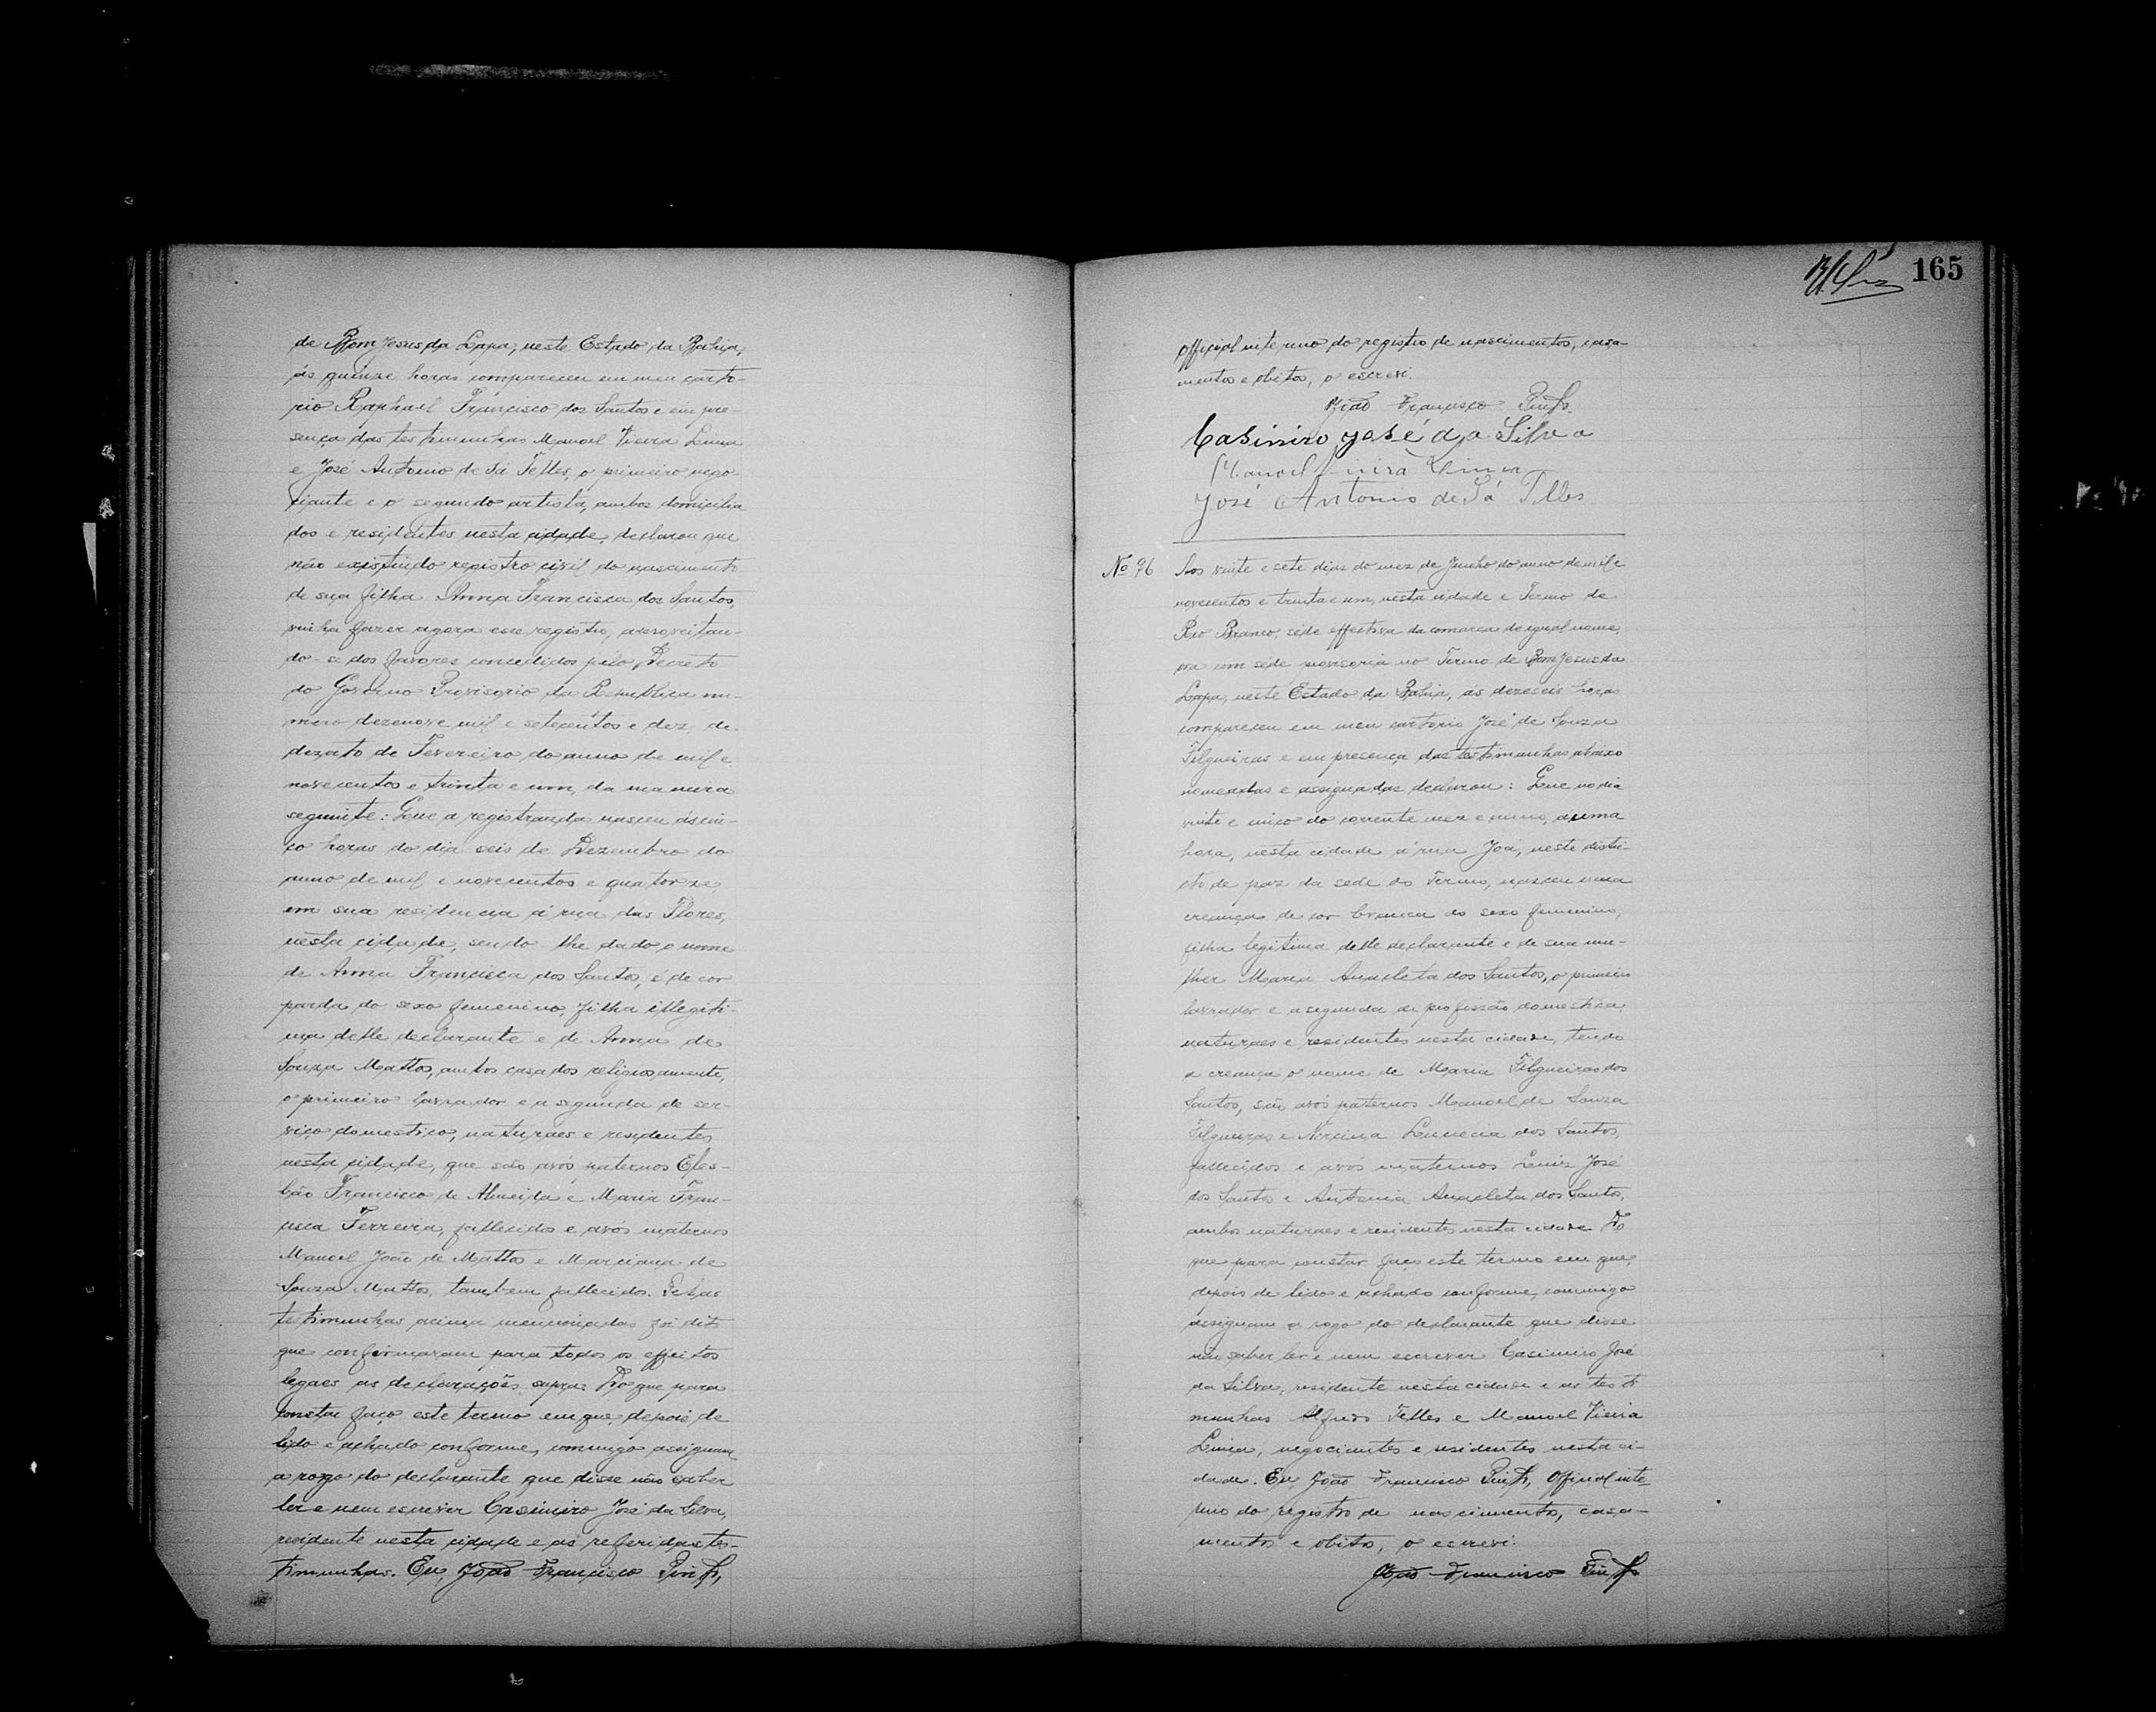 de Bom Jesus da Lapa, neste Estado da Bahia,
ás quinze horas compareceu em meu carto-
rio Raphael Francisco dos Santos e em pre-
sença das testimunhas Manoel Vieira Lima
e José Antonio de Sá Telles, o primeiro nego-
ciante e o segundo artista, ambos domicilia
dos e residentes nesta cidade, declarou que
não existindo registro civil do nascimento
de sua filha Anna Francisca dos Santos,
vinha fazer agora esse registro, aproveitan-
do-se dos favores concedidos pelo Decreto
do Governo Provisorio da Republica nu-
mero dezenove mil e setecentos e dez, de
dezoito de Fevereiro do anno de mil e
novecentos e trinta e um, da maneira
seguinte: Que a registranda nasceu ás cin-
co horas do dia seis de Dezembro do
anno de mil e novecentos e quatorze
em sua residencia á rua das Flores,
nesta cidade, sendo lhe dado o nome
de Anna Francisca dos Santos, é de cor
parda do sexo femenino, filha illegiti-
ma delle declarante e de Anna de
Souza Mattos, ambos casados religiosamente,
o primeiro lavrador e a segunda de ser-
viço domestico, naturaes e residentes
nesta cidade, que são avós paternos Eles-
bão Francisco de Almeida e Maria Fran-
cisca Ferreira, fallecidos e avós maternos
Manoel João de Mattos e Marciana de
Souza Mattos, tambem fallecidos. Pelas
testimunhas acima mencionadas foi dito
que confirmavam para todos os effeitos
legaes as declarações supra. Do que para
constar faço este termo em que, depois de
lido e achado conforme, commigo assignam
a rogo do declarante que disse não saber
ler e nem escrever Casimiro José da Silva,
residente nesta cidade e as referidas tes-
timunhas. Eu, João Francisco
165
Official interino do registro de nascimentos, casa-
mentos e obitos, o escrevi.
João Francisco
Casimiro José da Silva
Manoel Vieira Lima
José Antonio de Sá Telles
No 96 Aos vinte e sete dias do mez de Junho do anno de mil e
novecentos e trinta e um, nesta cidade e Termo de
Rio Branco, séde effectiva da comarca de igual nome,
ora com séde provisoria no Termo de Bom Jesus da
Lapa, neste Estado da Bahia, ás dezeseis horas
compareceu em meu cartorio José de Souza
Filgueiras e em presença das testimunhas abaixo
nomeadas e assignadas declarou: Que no dia
vinte e cinco do corrente mez e anno, á uma
hora, nesta cidade á rua Joá, neste distri-
cto de paz da sede do Termo, nasceu uma
creança de cor branca do sexo femenino,
filha legitima delle declarante e de sua mu-
lher Maria Anacleta dos Santos, o primeiro
lavrador e a segunda de profissão domestica,
naturaes e residentes nesta cidade, tendo
a creança o nome de Maria Filgueiras dos
Santos, são avós paternos Manoel de Souza
Filgueiras e dos Santos,
fallecidos e avós maternos Luiz José
dos Santos e Antonia Anacleta dos Santos,
ambos naturaes e residentes nesta cidade. Do
que para constar faço este termo em que,
depois de lido e achado conforme, commigo
assignam a rogo do declarante que disse
não saber ler e nem escrever Casimiro José
da Silva, residente nesta cidade e as testi
munhas Alfredo Telles e Manoel Vieira
Lima, negociantes e residentes nesta ci-
dade. Eu, João Francisco Official inte-
rino do registro de nascimentos, casa-
mentos e obitos, o escrevi.
João Francisco